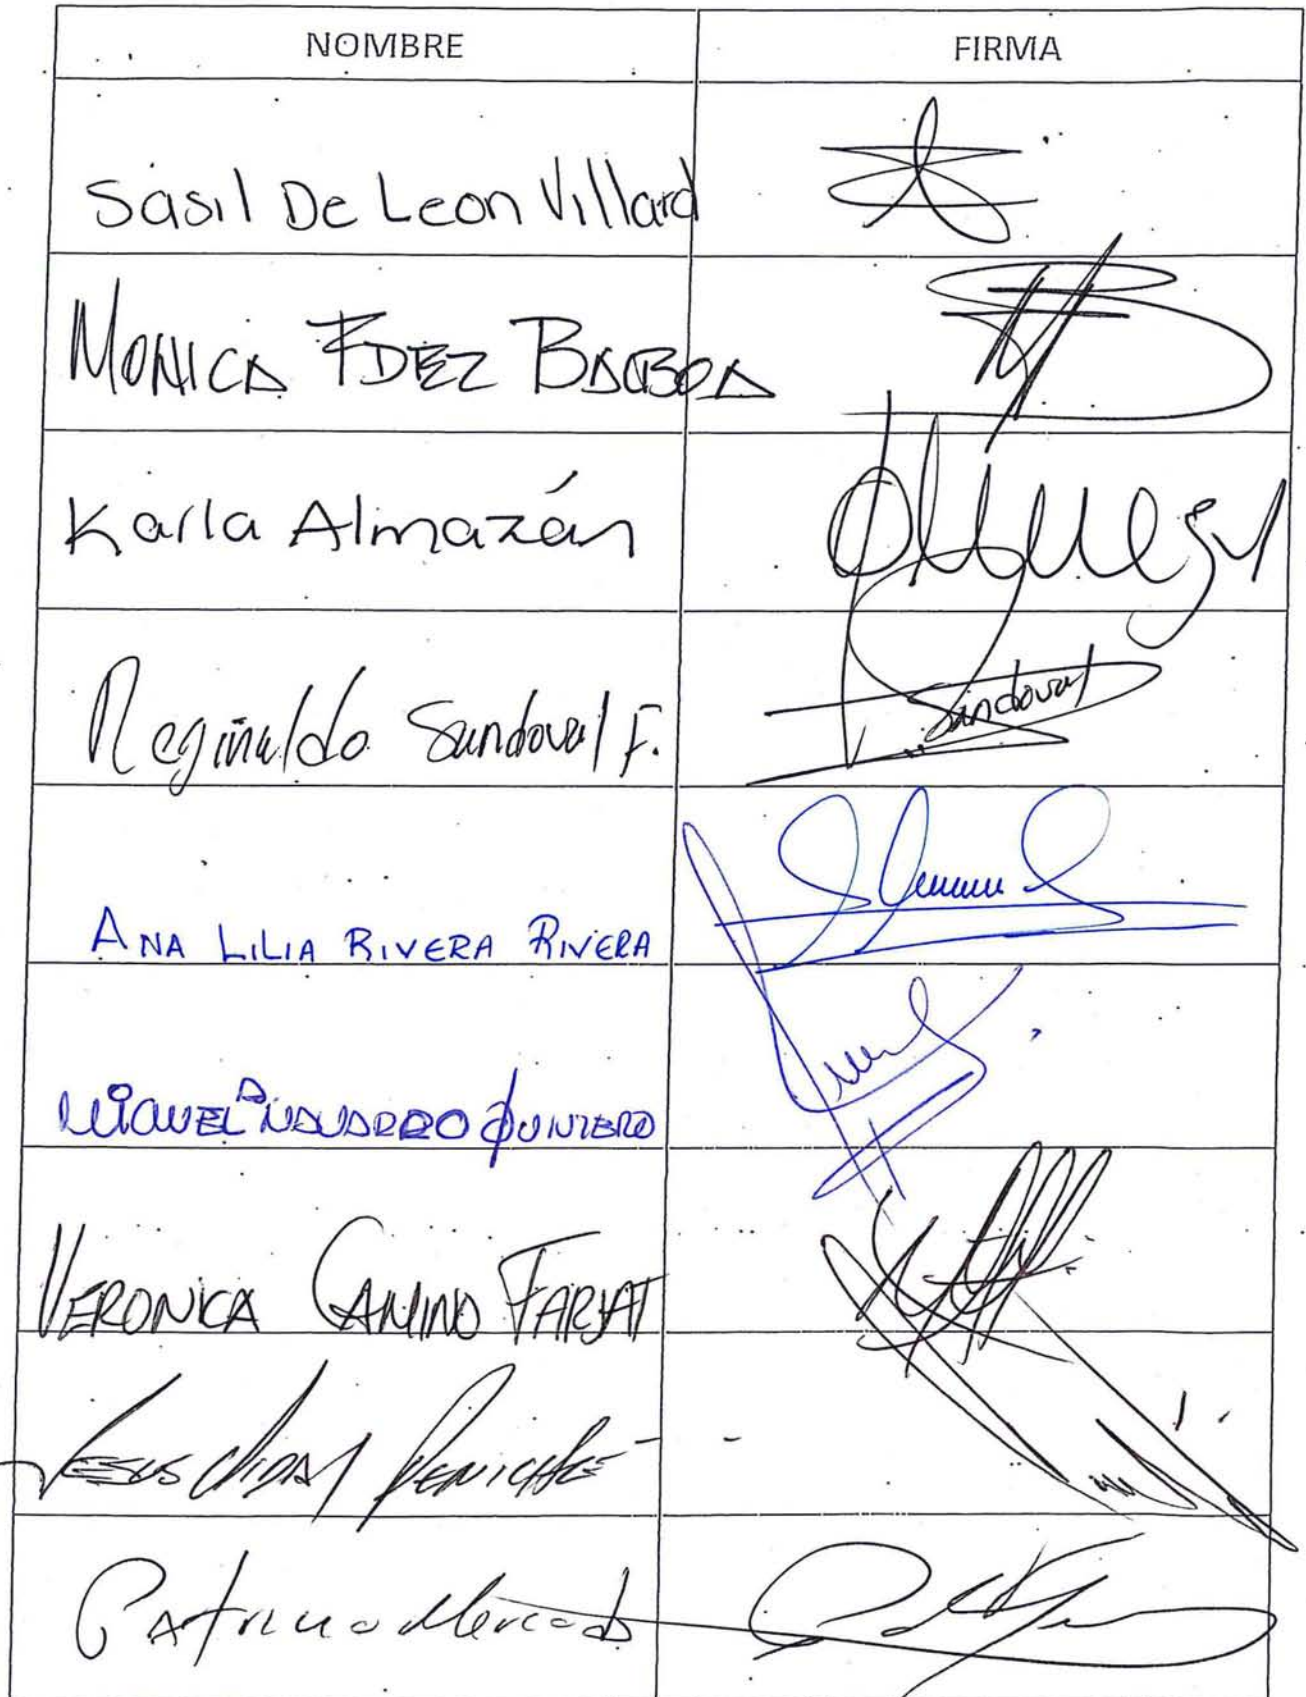 NOMBRE FIRMA
Sasil De Leon Villard
MONICA FDEZ BALBOA
Karla Almazán
Reginaldo Sandoval F.
Sandoval
ANA LILIA RIVERA RIVERA
MIGUEL A NAVARRO QUINTERO
VERONICA CAMINO FARJAT
JESUS VIDAL PENICHE
Patricia Mercado